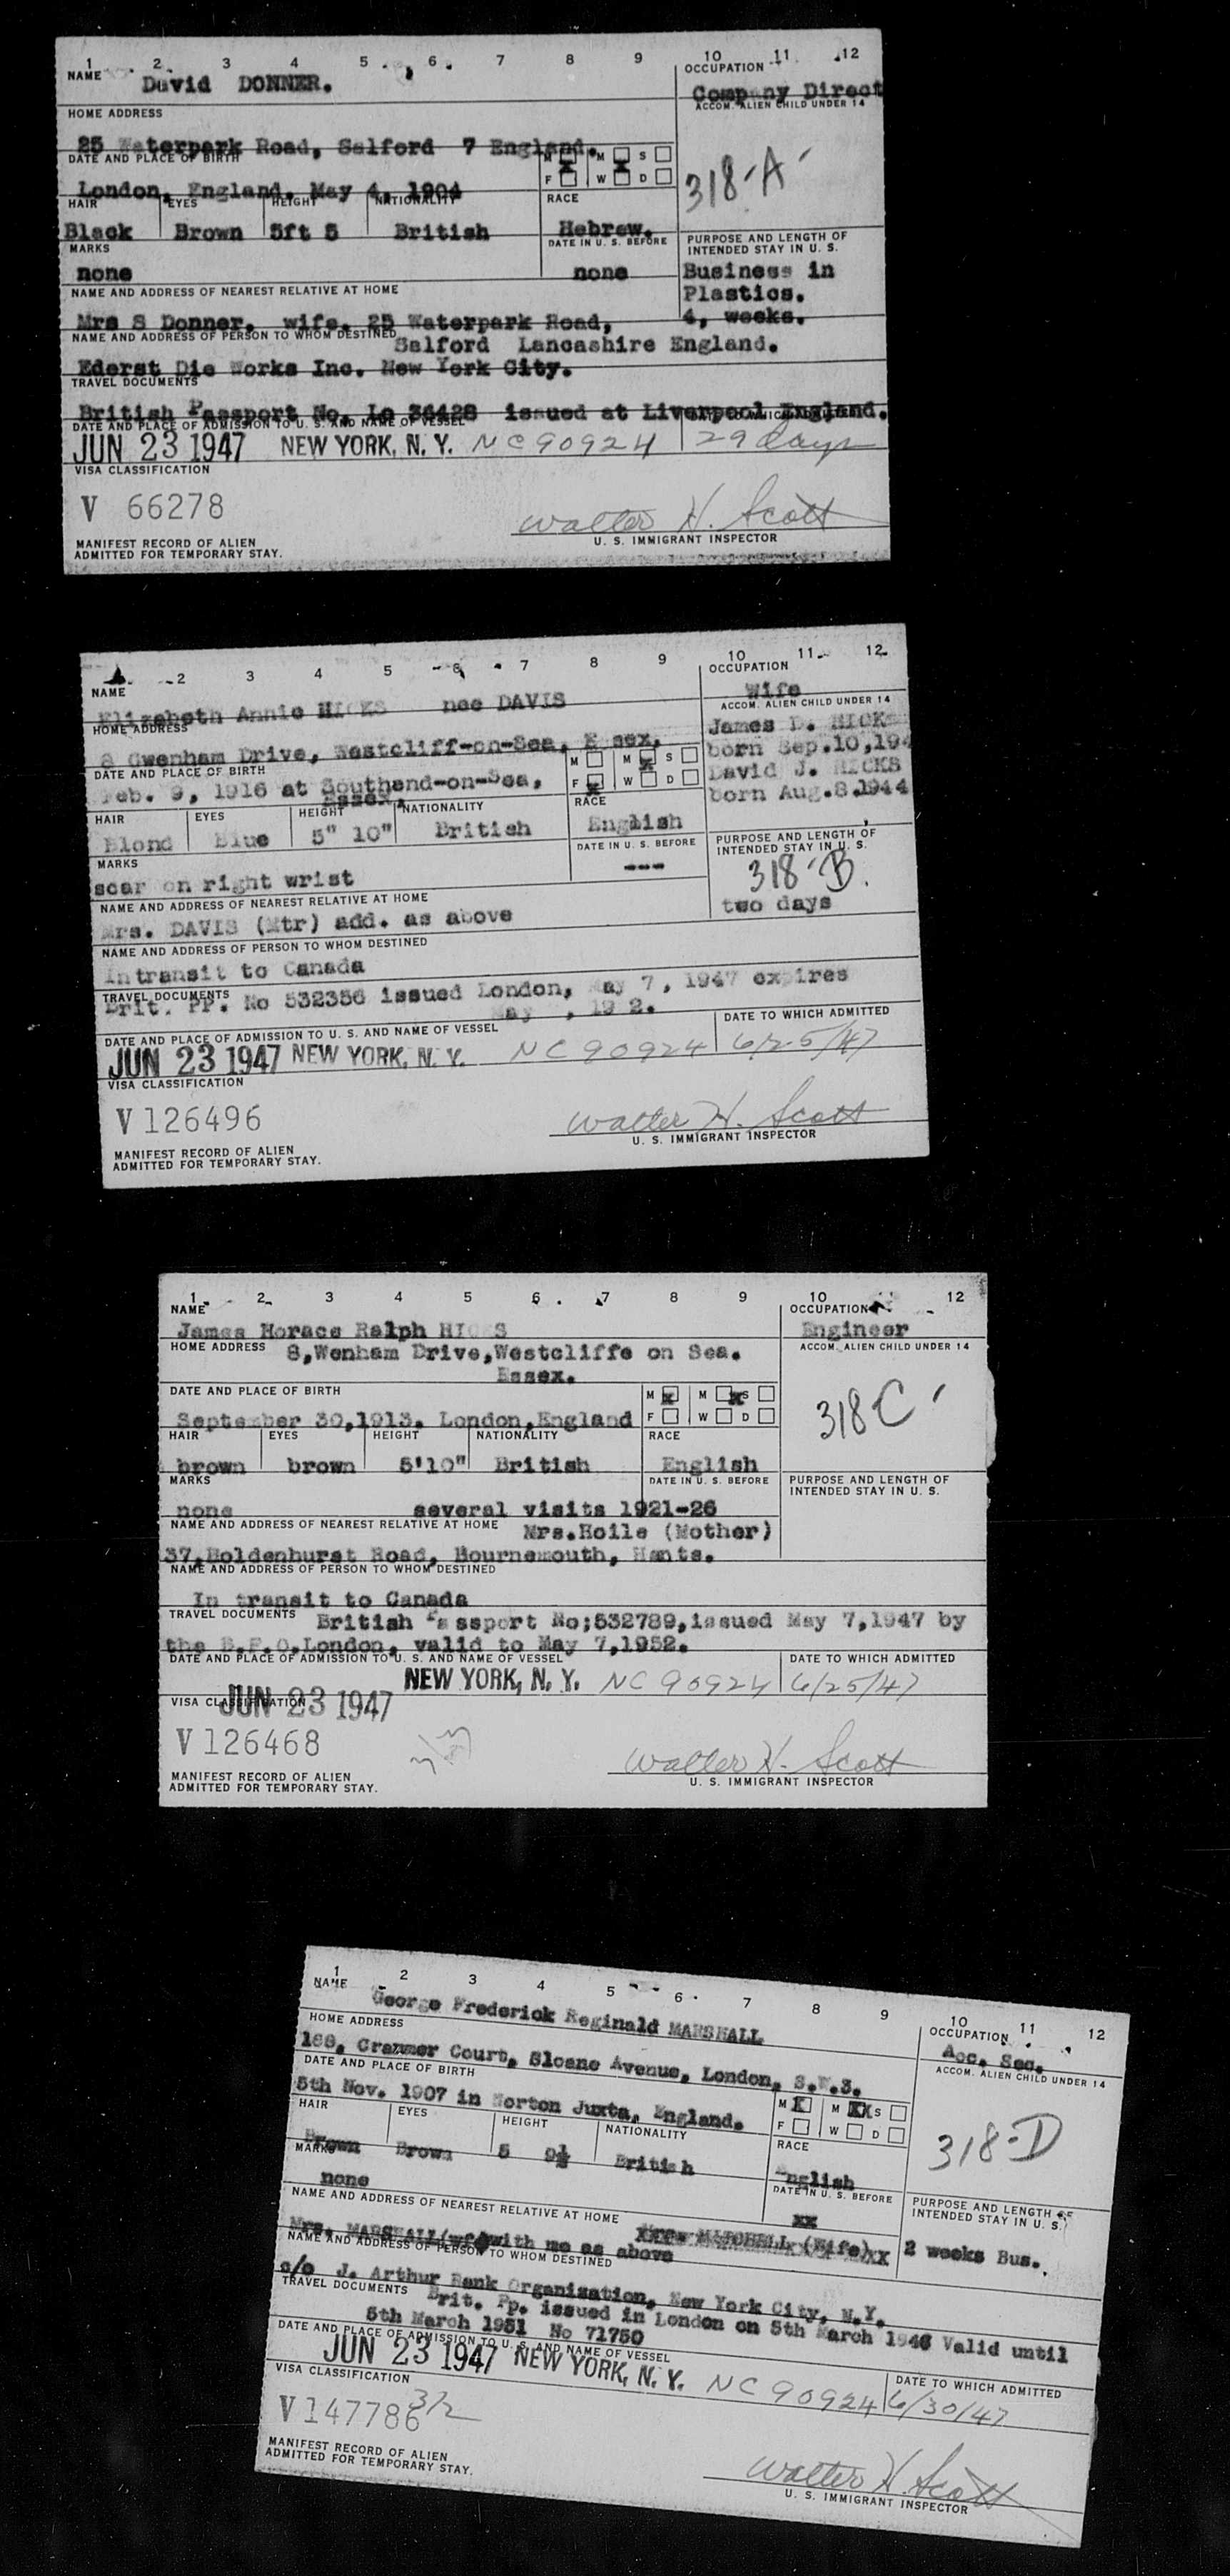 1 2 3 4 5 6 7 8 9 10 11 12
NAME
David DONNER.
OCCUPATION
Company Direct
HOME ADDRESS
ACCOM. ALIEN CHILD UNDER 14
25 Waterpark Road, Salford 7 England.
DATE AND PLACE OF BIRTH
M M S
F W D
London, England, May 4, 1904
318-A
HAIR EYES HEIGHT NATIONALITY RACE
Black Brown 5ft 5 British Hebrew.
MARKS DATE IN U. S. BEFORE
PURPOSE AND LENGTH OF
INTENDED STAY IN U. S.
none none
Business in
Plastics.
4, weeks.
NAME AND ADDRESS OF NEAREST RELATIVE AT HOME
Mrs S Donner, wife, 25 Waterpark Road,
Salford Lancashire England.
NAME AND ADDRESS OF PERSON TO WHOM DESTINED
Ederst Die Works Inc. New York City.
TRAVEL DOCUMENTS
British Passport No. Lo 36428 issued at Liverpool England.
DATE AND PLACE OF ADMISSION TO U. S. AND NAME OF VESSEL
JUN 23 1947 NEW YORK, N. Y. NC 90924 29 days
VISA CLASSIFICATION
V 66278
Walter H. Scott
U. S. IMMIGRANT INSPECTOR
MANIFEST RECORD OF ALIEN
ADMITTED FOR TEMPORARY STAY.
2 3 4 5 6 7 8 9 10 11 12
NAME
Elizabeth Annie HICKS nee DAVIS
OCCUPATION
Wife
HOME ADDRESS
ACCOM. ALIEN CHILD UNDER 14
8 Gwenham Drive, Westcliff-on-Sea, Essex,
James D. HICKS
born Sep.10,194
David J. HICKS
born Aug.8.1944
DATE AND PLACE OF BIRTH
M M S
F W D
Feb. 9, 1916 at Southend-on-Sea,
Essex,
HAIR EYES HEIGHT NATIONALITY RACE
Blond Blue 5" 10" British English
MARKS DATE IN U. S. BEFORE
PURPOSE AND LENGTH OF
INTENDED STAY IN U. S.
scar on right wrist ---
318-B.
two days
NAME AND ADDRESS OF NEAREST RELATIVE AT HOME
Mrs. DAVIS (Mtr) add. as above
NAME AND ADDRESS OF PERSON TO WHOM DESTINED
Intransit to Canada
TRAVEL DOCUMENTS
Brit. PP. No 532356 issued London, May 7, 1947 expires
May
DATE AND PLACE OF ADMISSION TO U. S. AND NAME OF VESSEL DATE TO WHICH ADMITTED
JUN 23 1947 NEW YORK, N. Y. NC 90924 6/25/47
VISA CLASSIFICATION
V 126496
Walter H. Scott
U. S. IMMIGRANT INSPECTOR
MANIFEST RECORD OF ALIEN
ADMITTED FOR TEMPORARY STAY.
1 2 3 4 5 6 7 8 9 10 12
NAME
James Horace Ralph HICKS
OCCUPATION
Engineer
HOME ADDRESS 8,Wenham Drive,Westcliffe on Sea.
Essex.
ACCOM. ALIEN CHILD UNDER 14
DATE AND PLACE OF BIRTH
M M S
F W D
September 30,1913. London,England
318 C
HAIR EYES HEIGHT NATIONALITY RACE
brown brown 5'10" British English
MARKS DATE IN U. S. BEFORE
PURPOSE AND LENGTH OF
INTENDED STAY IN U. S.
none several visits 1921-26
NAME AND ADDRESS OF NEAREST RELATIVE AT HOME Mrs.Hoile (Mother)
37,Holdenhurst Road, Bournemouth, Hants.
NAME AND ADDRESS OF PERSON TO WHOM DESTINED
In transit to Canada
TRAVEL DOCUMENTS British Passport No;532789,issued May 7,1947 by
the B.F.O.London, valid to May 7,1952.
DATE AND PLACE OF ADMISSION TO U. S. AND NAME OF VESSEL DATE TO WHICH ADMITTED
NEW YORK, N. Y. NC 90924 6/25/47
VISA CLASSIFICATION JUN 23 1947
V 126468
Walter H. Scott
U. S. IMMIGRANT INSPECTOR
MANIFEST RECORD OF ALIEN
ADMITTED FOR TEMPORARY STAY.
1 2 3 4 5 6 7 8 9 10 11 12
NAME
George Frederick Reginald MARSHALL
OCCUPATION
Acc. Sec.
HOME ADDRESS
ACCOM. ALIEN CHILD UNDER 14
188, Cranmer Court, Sloane Avenue, London, S.W.3.
DATE AND PLACE OF BIRTH
M M S
F W D
5th Nov. 1907 in Norton Juxta, England.
318-D
HAIR EYES HEIGHT NATIONALITY RACE
Brown Brown 5 9½ British English
MARKS DATE IN U. S. BEFORE
PURPOSE AND LENGTH OF
INTENDED STAY IN U. S.
none xx
2 weeks Bus.
NAME AND ADDRESS OF NEAREST RELATIVE AT HOME
Mrs. MARSHALL (wfe) with me as above
NAME AND ADDRESS OF PERSON TO WHOM DESTINED
c/o J. Arthur Rank Organization, New York City, N.Y.
TRAVEL DOCUMENTS Brit. Pp. issued in London on 5th March 1946 Valid until
5th March 1951 No 71750
DATE AND PLACE OF ADMISSION TO U. S. AND NAME OF VESSEL DATE TO WHICH ADMITTED
JUN 23 1947 NEW YORK, N. Y. NC 90924 6/30/47
VISA CLASSIFICATION
V 147786 3/2
Walter H. Scott
U. S. IMMIGRANT INSPECTOR
MANIFEST RECORD OF ALIEN
ADMITTED FOR TEMPORARY STAY.